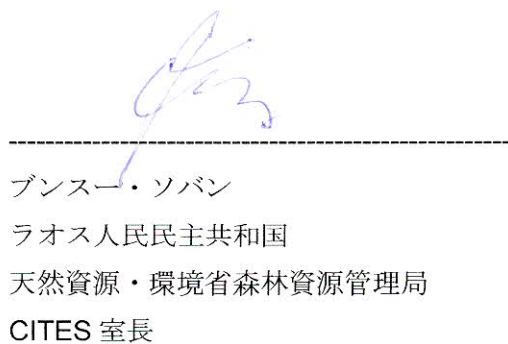 ブンスー・ソバン
ラオス人民民主共和国
天然資源・環境省森林資源管理局
CITES 室長